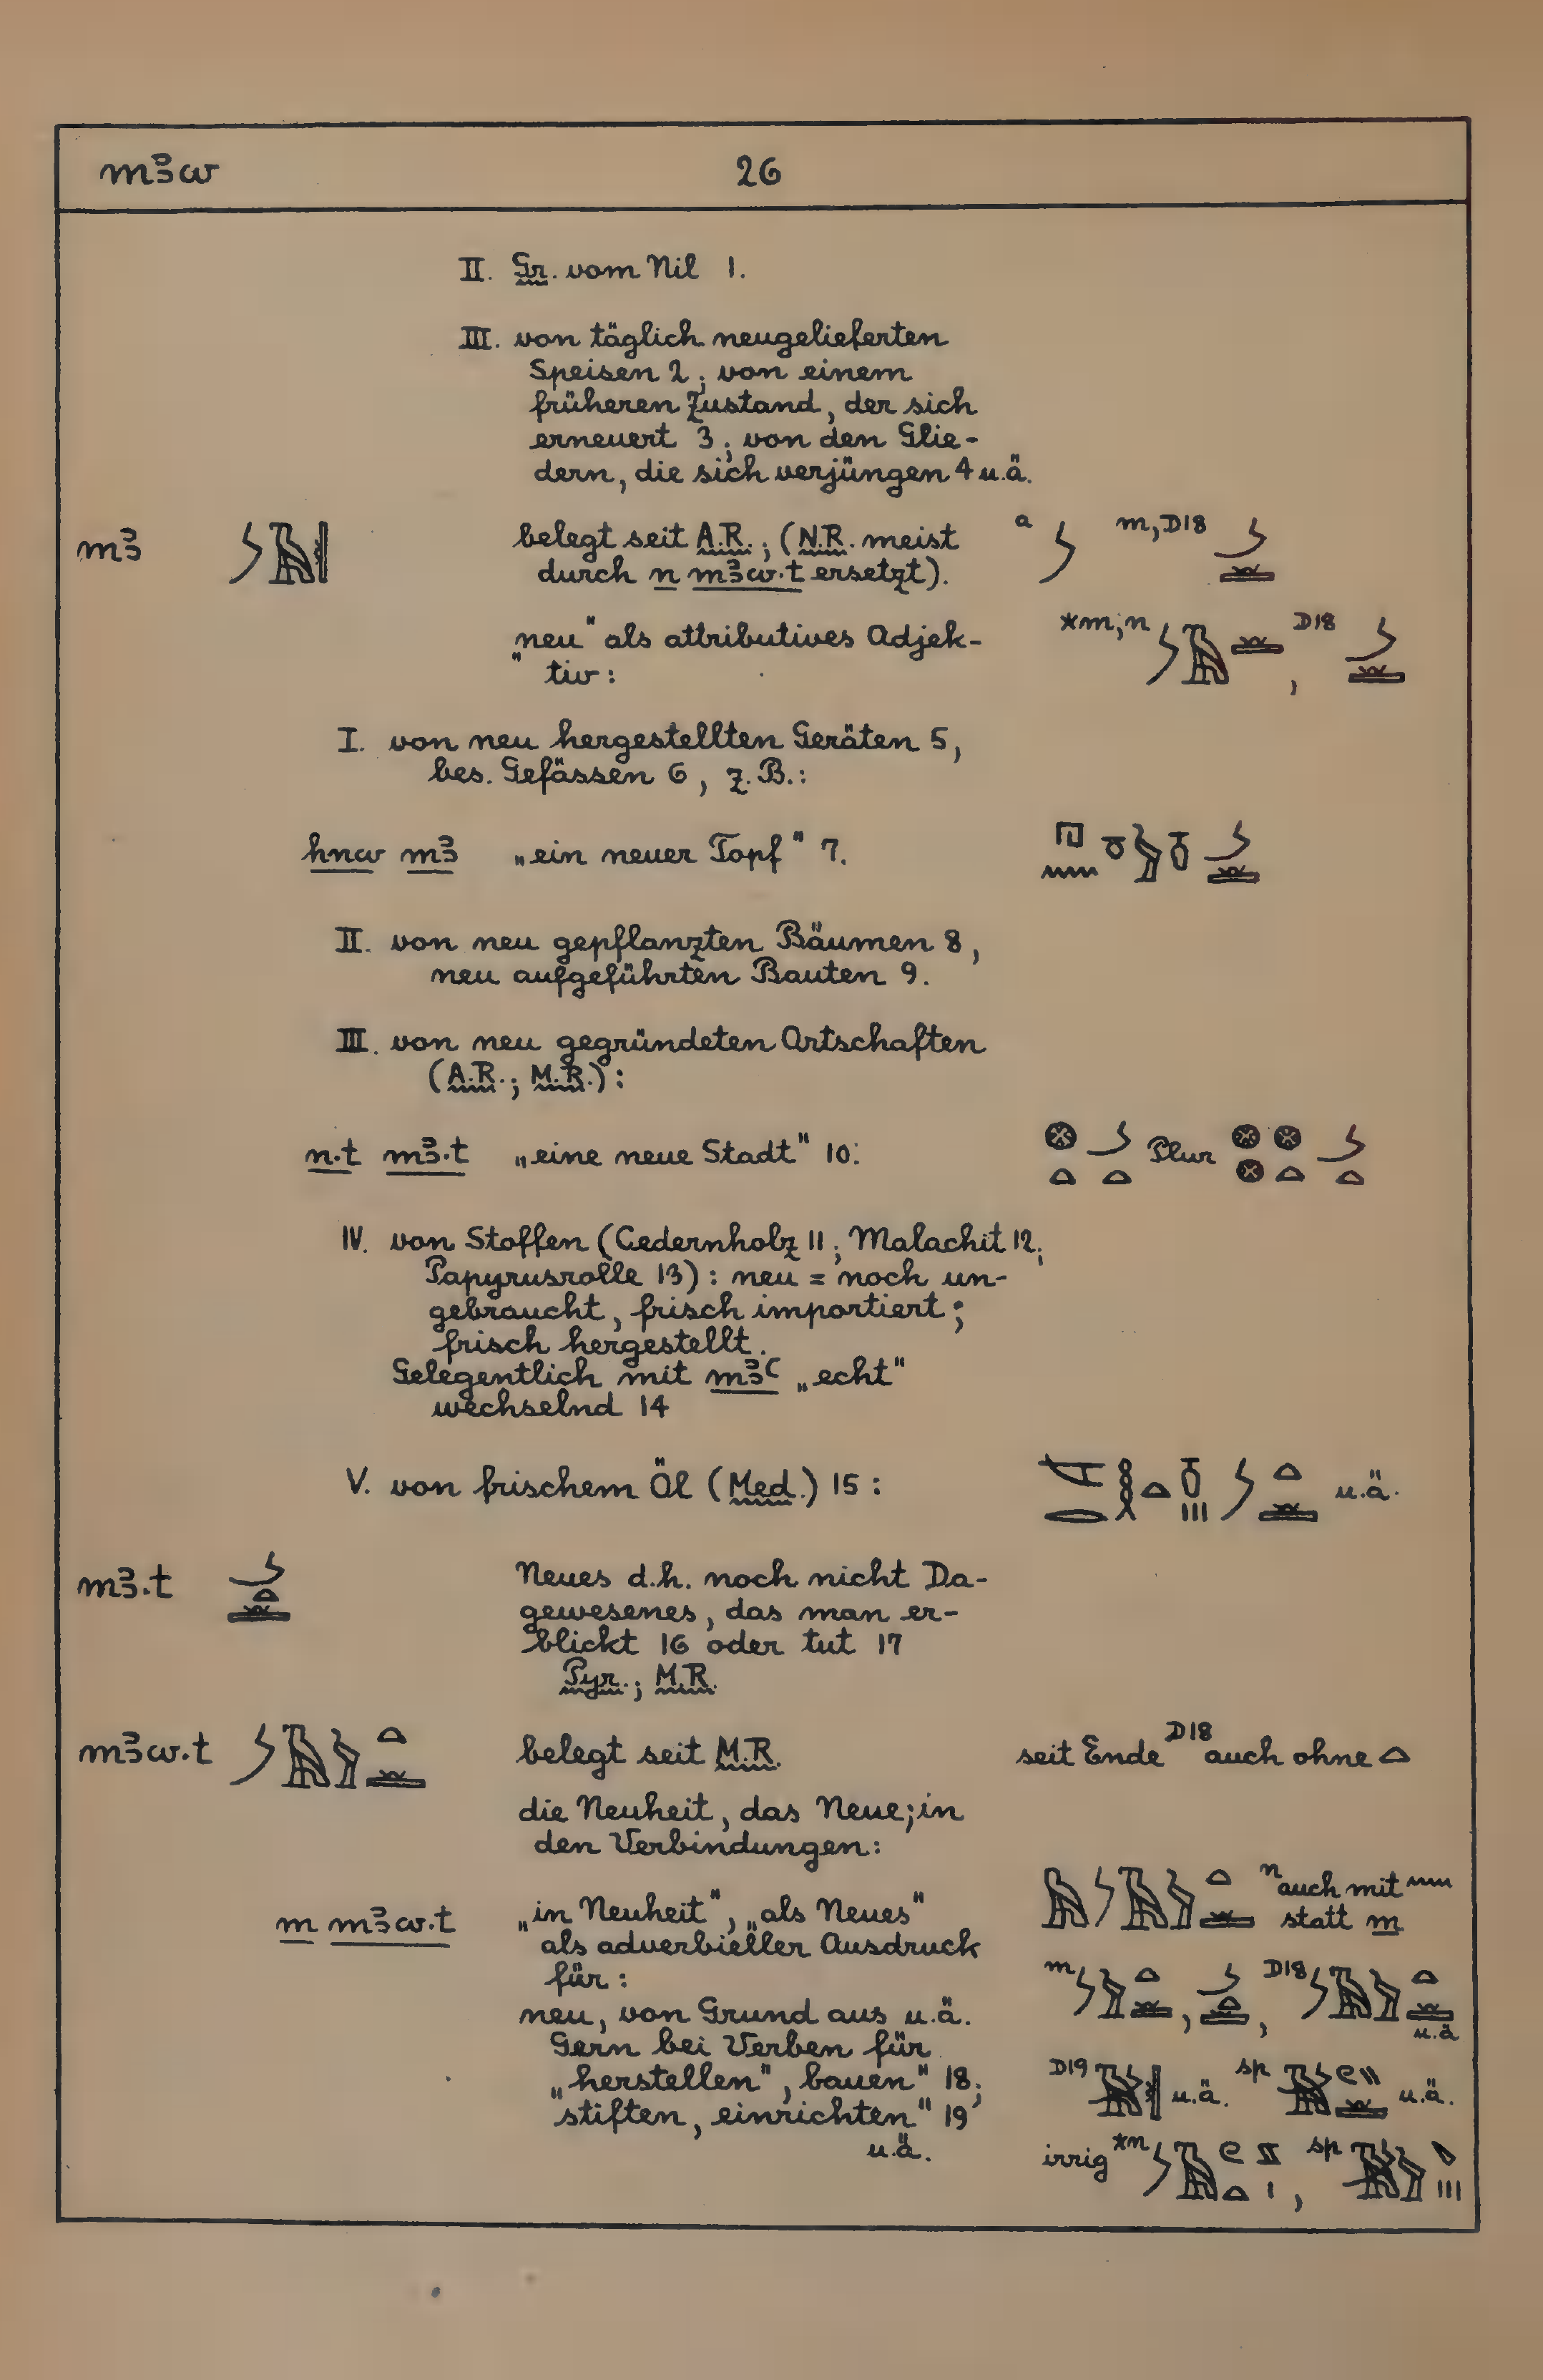 mꜣw 26
II. Gr. vom Nil 1.
III. von täglich neugelieferten
Speisen 2; von einem
früheren Zustand, der sich
erneuert 3; von den Glie-
dern, die sich verjüngen 4 u.ä.
mꜣ belegt seit A.R.; (N.R. meist a m, D18
durch n mꜣw.t ersetzt).
„neu“ als attributives Adjek- *m; n , D18
tiv:
I. von neu hergestellten Geräten 5,
bes. Gefässen 6, z.B.:
hnw mꜣ „ein neuer Topf“ 7.
II. von neu gepflanzten Bäumen 8,
neu aufgeführten Bauten 9.
III. von neu gegründeten Ortschaften
(A.R.; M.R.):
n.t mꜣ.t „eine neue Stadt“ 10: Plur
IV. von Stoffen (Cedernholz 11; Malachit 12;
Papyrusrolle 13): neu = noch un-
gebraucht, frisch importiert;
frisch hergestellt.
Gelegentlich mit mꜣꜥ „echt“
wechselnd 14
V. von frischem Öl (Med.) 15: u.ä.
mꜣ.t Neues d.h. noch nicht Da-
gewesenes, das man er-
blickt 16 oder tut 17
Pyr.; M.R.
mꜣw.t belegt seit M.R. seit Ende D18 auch ohne
die Neuheit, das Neue; in
den Verbindungen:
m mꜣw.t „in Neuheit“, „als Neues“ n auch mit
statt m
als adverbieller Ausdruck
für: m , , D18 u.ä
neu, von Grund aus u.ä.
Gern bei Verben für
„herstellen“, bauen“ 18; D19 u.ä. sp u.ä.
„stiften, einrichten“ 19
u.ä. irrig *n , sp